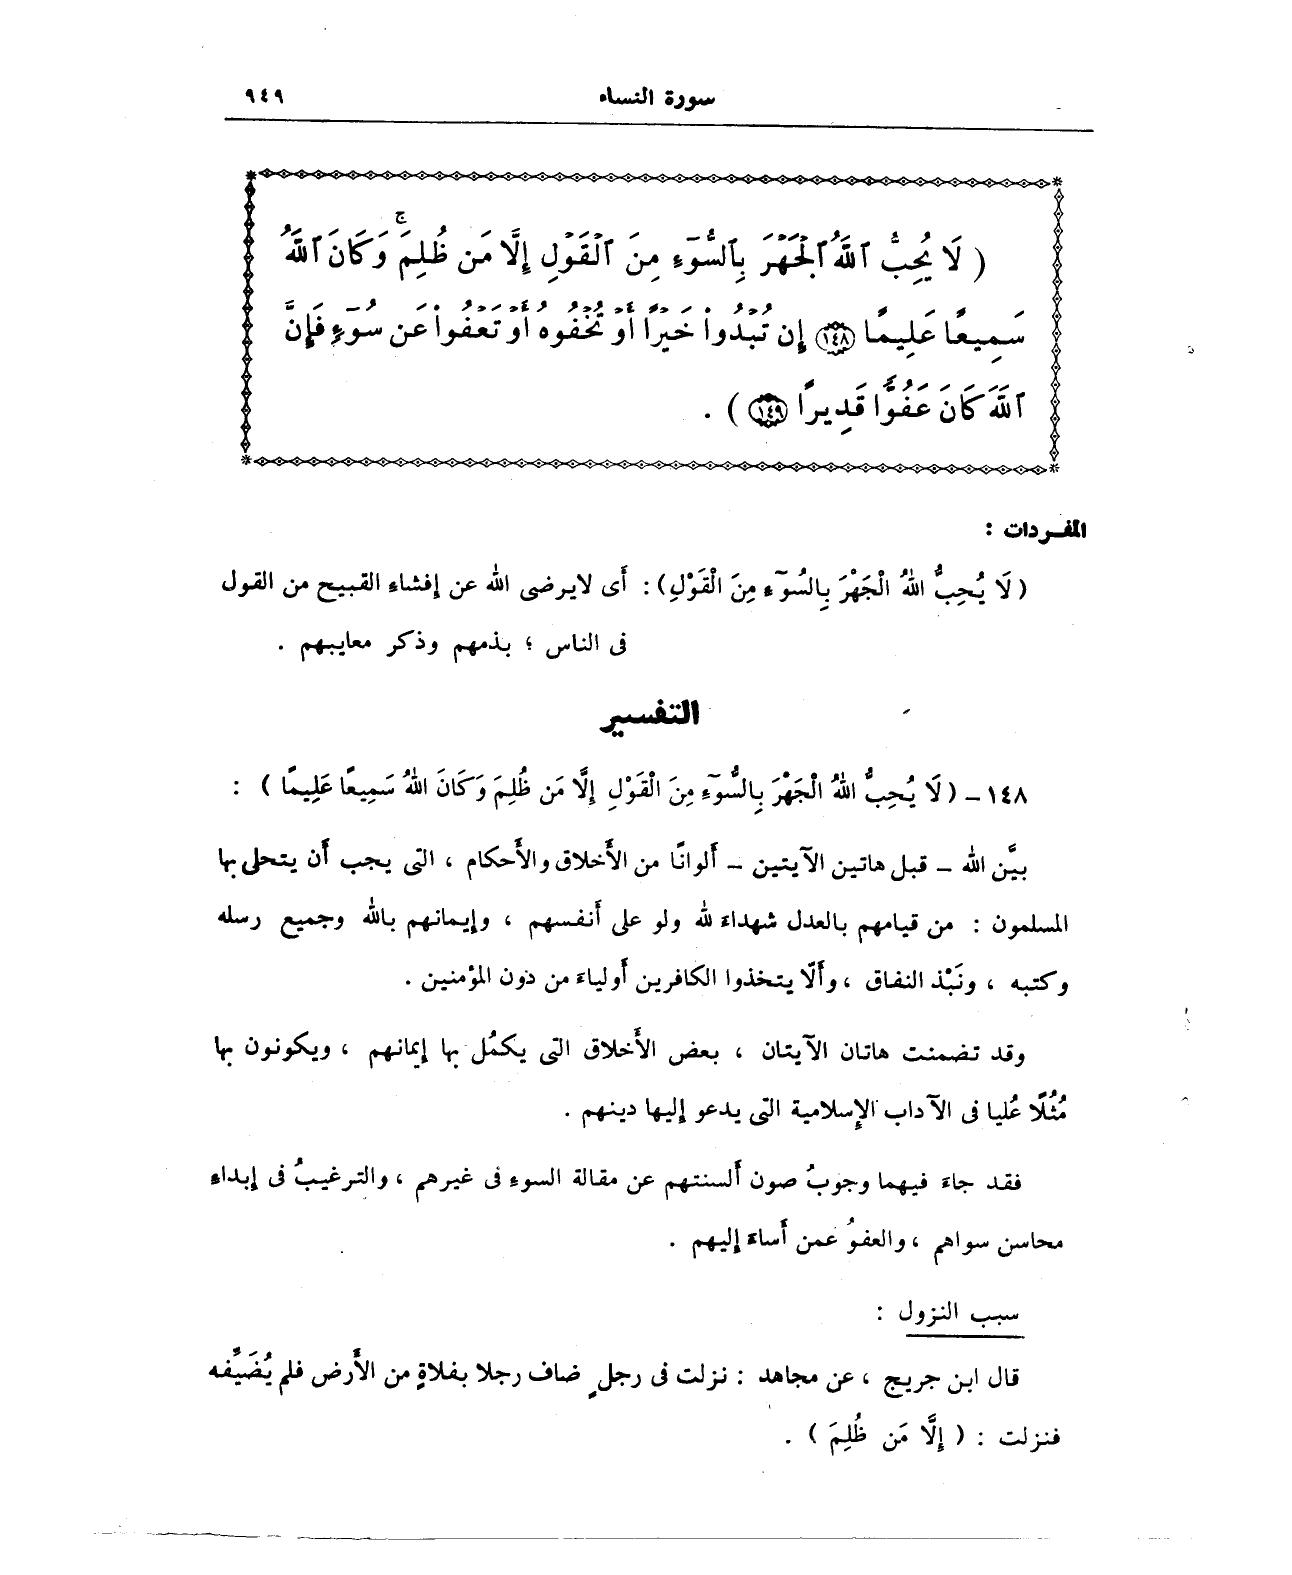 سورة النساء ٩٤٩
( لَا يُحِبُّ ٱللَّهُ ٱلْجَهْرَ بِٱلسُّوٓءِ مِنَ ٱلْقَوْلِ إِلَّا مَن ظُلِمَ ۚ وَكَانَ ٱللَّهُ
سَمِيعًا عَلِيمًا ١٤٨ إِن تُبْدُوا۟ خَيْرًا أَوْ تُخْفُوهُ أَوْ تَعْفُوا۟ عَن سُوٓءٍ فَإِنَّ
ٱللَّهَ كَانَ عَفُوًّا قَدِيرًا ١٤٩ ) .
المفـردات :
( لَا يُحِبُّ اللهُ الْجَهْرَ بِالسُوٓءِ مِنَ الْقَوْلِ) : أَى لايرضى الله عن إفشاء القبيح من القول
فى الناس ؛ بذمهم وذكر معايبهم .
التفسير
١٤٨ – ( لَا يُحِبُّ اللهُ الْجَهْرَ بِالسُّوٓءِ مِنَ الْقَوْلِ إِلَّا مَن ظُلِمَ وَكَانَ اللهُ سَمِيعًا عَلِيمًا ) :
بيَّن الله – قبل هاتين الآيتين – أَلوانًا من الأَخلاق والأَحكام ، التى يجب أَن يتحلى بها
المسلمون : من قيامهم بالعدل شهداءَ لله ولو على أَنفسهم ، وإيمانهم بالله وجميع رسله
وكتبه ، ونَبْذ النفاق ، وأَلّا يتخذوا الكافرين أَولياءَ من دون المؤمنين .
وقد تضمنت هاتان الآيتان ، بعض الأَخلاق التى يكمُل بها إيمانهم ، ويكونون بها
مُثُلًا عُليا فى الآداب الإسلامية التى يدعو إليها دينهم .
فقد جاءَ فيهما وجوبُ صون أَلسنتهم عن مقالة السوء فى غيرهم ، والترغيبُ فى إبداءِ
محاسن سواهم ، والعفوُ عمن أَساءَ إليهم .
سبب النزول :
قال ابن جريج ، عن مجاهد : نزلت فى رجلٍ ضاف رجلا بفلاةٍ من الأَرض فلم يُضَيِّفه
فنزلت : ( إِلَّا مَن ظُلِمَ ) .